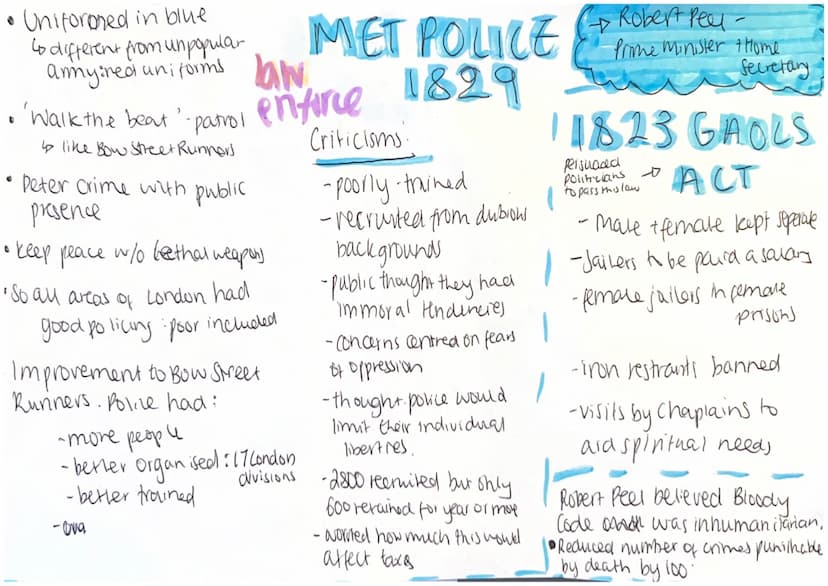 • Uniformed in blue
↳ different from unpopular
army in red uniforms
• 'Walk the beat' - patrol
↳ like Bow Street Runners
• Deter crime with public
presence
• Keep peace w/o lethal weapons
• So all areas of London had
good policing : poor included
Improvement to Bow Street
Runners. Police had:
- more people
- better organised : 17 London
divisions
- better trained
law
enforce
MET POLICE
1829
Criticisms:
- poorly trained
- recruited from dubious
backgrounds
- public thought they had
immoral tendencies
- concerns centred on fears
of oppression
- thought police would
limit their individual
liberties.
- 2800 recruited but only
600 retained for year or more
- worried how much this would
affect taxes
→ Robert Peel -
Prime Minister + Home
Secretary
1823 GAOLS
ACT
persuaded
politicians →
to pass this law
- Male + female kept seperate
- Jailers to be paid a salary
- female jailers in female
prisons
- iron restraints banned
- visits by Chaplains to
aid spiritual needs
Robert Peel believed Bloody
Code was inhumanitarian.
• Reduced number of crimes punishable
by death by 100.